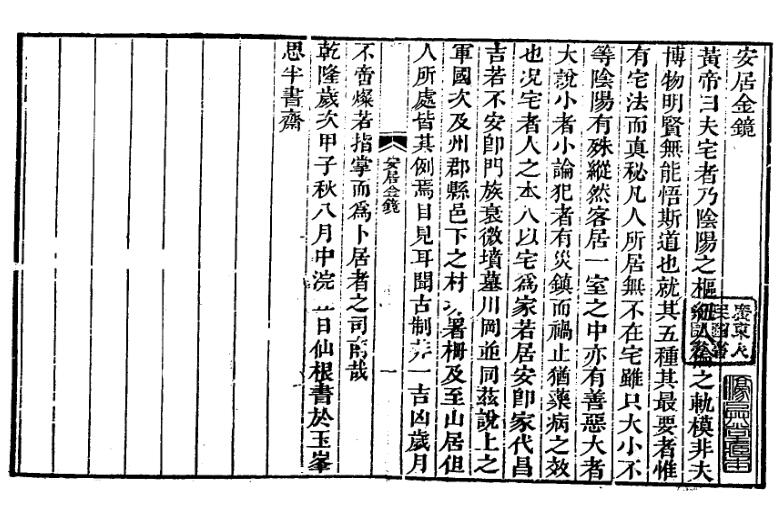 安居金鏡
黃帝曰夫宅者乃陰陽之樞紐人倫之軌模非夫
博物明賢無能悟斯道也就其五種其最要者惟
有宅法而真秘凡人所居無不在宅雖只大小不
等陰陽有殊縱然客居一室之中亦有善惡大者
大說小者小論犯者有災鎮而禍止猶藥病之效
也况宅者人之本人以宅爲家若居安卽家代昌
吉若不安卽門族衰微墳墓川岡並同茲說上之
軍國次及州郡縣邑下之村署栅及至山居但
人所處皆其例焉目見耳聞古制一吉凶歲月
安居金鏡
一
不啻燦若指掌而爲卜居者之司南哉
乾隆歲次甲子秋八月中浣日仙根書於玉峯
思半書齋